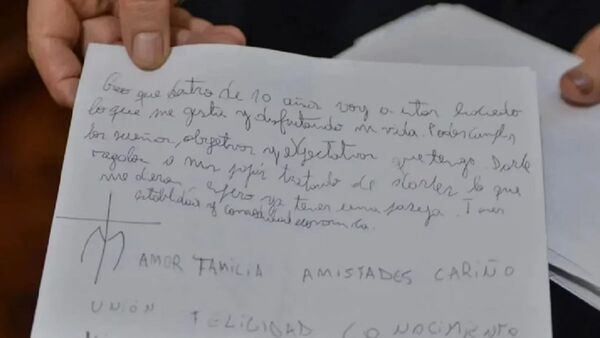 Creo que dentro de 10 años voy a estar haciendo
lo que me gusta y disfrutando mi vida. Poder cumplir
los sueños, objetivos y expectativas que tengo. Darle
regalos a mis papis tratando de darles lo que
me dieron, espero ya tener una pareja. Tener
estabilidad y comodidad economica.
AMOR FAMILIA AMISTADES CARIÑO
UNIÓN FELICIDAD CONOCIMIENTO